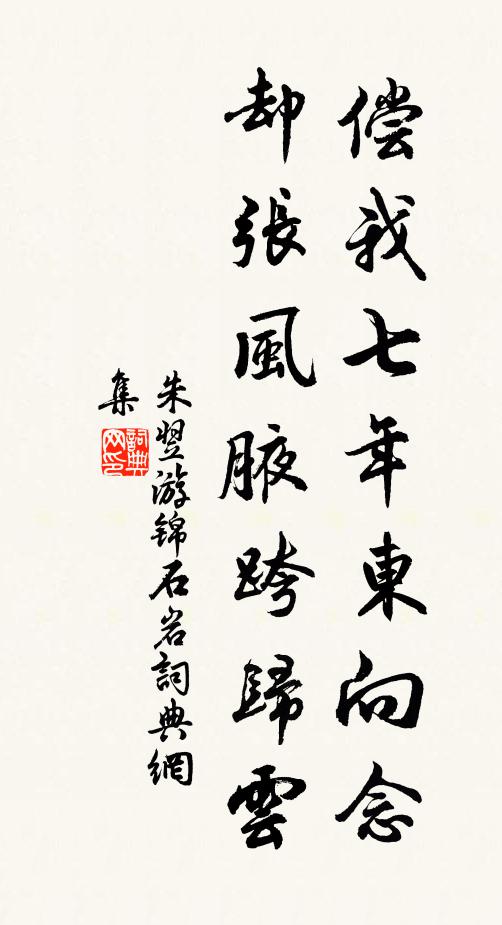 偿我七年東向念
却張風腋跨歸雲
朱翌游錦石岩詞典網
集
詞典網印